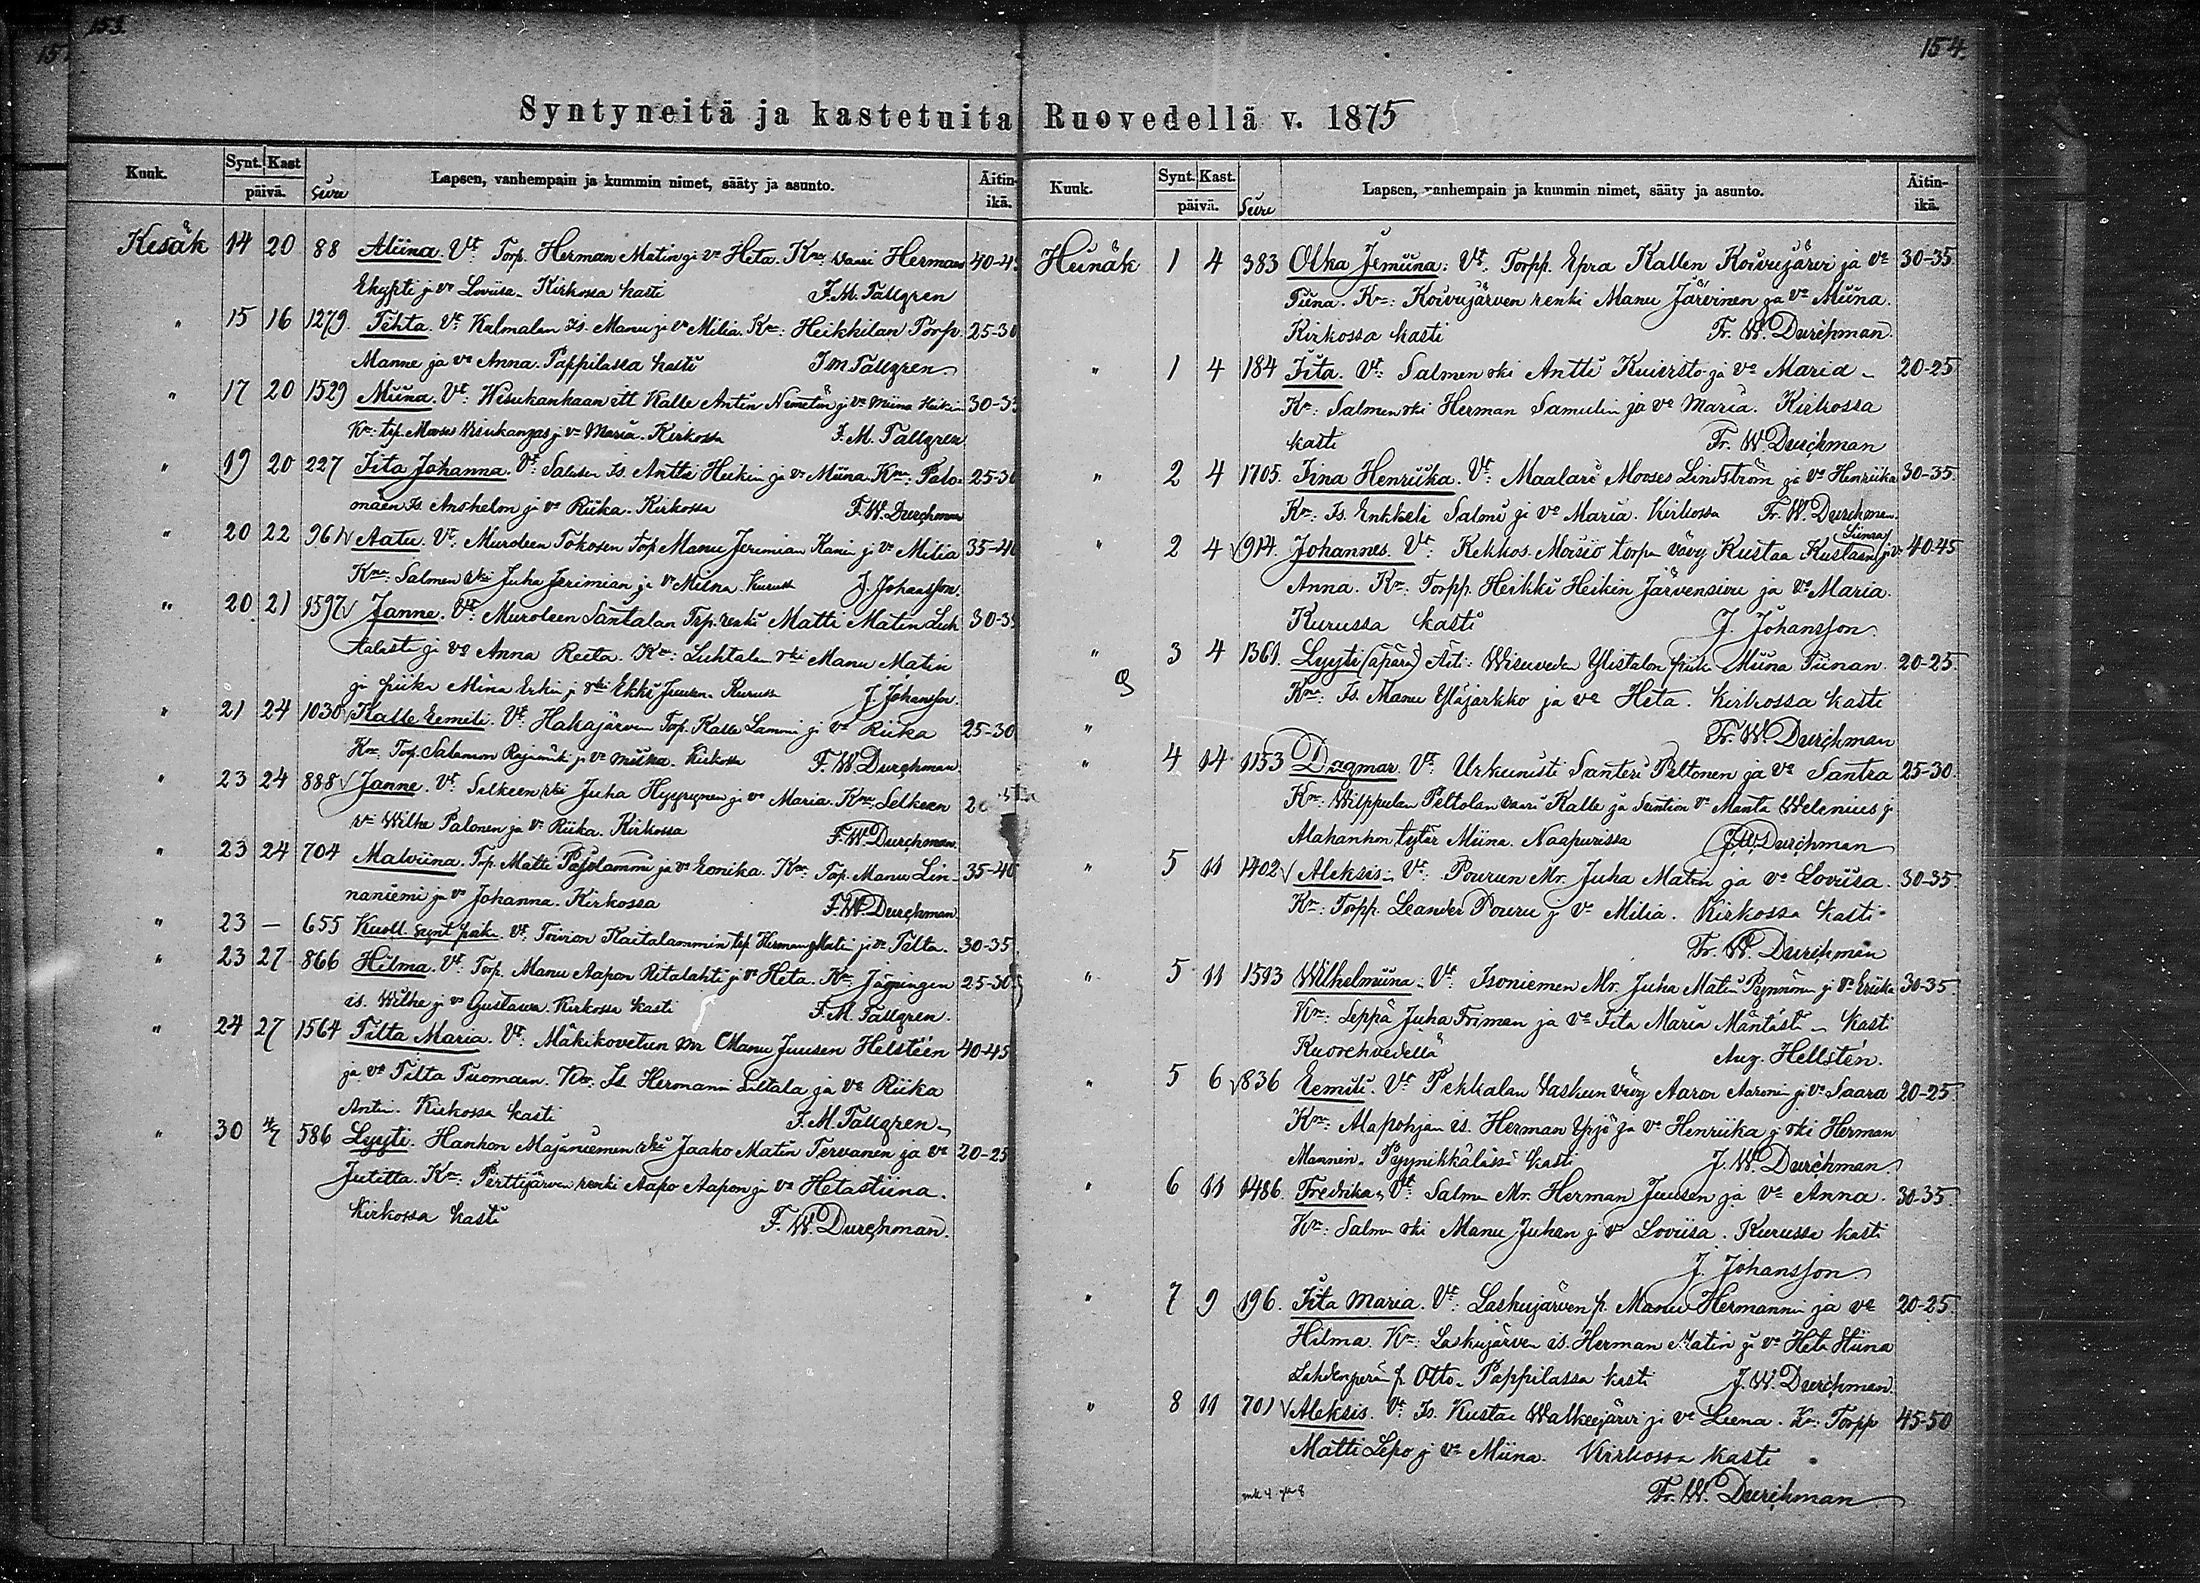 153.
15
154.
Syntyneitä ja kastetuita Ruovedellä v. 1875
Kuuk. Synt. Kast päivä. Sivu Lapsen, vanhempain ja kummin nimet, sääty ja asunto. Äitin-ikä.
Kesäk 14 20 88 Aliina. Vt Torp. Herman Matin ja vo Heta. Kmr: Vaari Herman 40-45
Ekypti ja vo Loviisa. Kirkossa kasti F. M. Tallgren
" 15 16 1279 Tekta. Vt. Kalmalan Is. Manu ja vo Milia. Kmr: Heikkilän Torp. 25-30
Manne ja vo Anna. Pappilassa kasti F M Tallgren
" 17 20 1529 Miina. Vt: Wisukankaan itt Kalle Antin Niemetön ja vo Miina Heikin 30-35
Km: trp. Mooses Wisukangas ja vo Maria. Kirkossa F. M. Tallgren
" 19 20 227 Iita Johanna. Vt. Salusen Is. Antti Heikin ja vo Miina. Km: Palo- 25-30
mäen Is Anshelm ja vo Riika. Kirkossa F. W. Durchman
" 20 22 961 √ Aatu. Vt: Muroleen Tokosen Torp Manu Jerimian ja vo Milia 35-40
Kmr: Salmen rki Juha Jerimian ja vo Miina. Kurussa J. Johansson.
" 20 21 1597 √ Janne. Vt: Muroleen Santalan Trp. renki Matti Matin Luh 30-35
talasti ja vo Anna Reeta. Km: Luhtalan rki Manu Matin
ja piika Miina Erkin ja rki Erkki Juusen. Kurussa J. Johansson.
" 21 24 1030 √ Kalle Eemili. Vt. Hakajärven Torp. Kalle Lammi ja vo Riika 25-30
Km: Torp. Salamon Rajamäki ja vo Miina. Kirkossa F. W. Durchman.
" 23 24 888 √ Janne. Vt. Selkeen rki Juha Hyyrynen ja vo Maria. Kmr. Selkeen
Wilhe Palonen ja vo Riika. Kirkossa F. W. Durchman.
" 23 24 704 Malviina. Trp. Matti Pajulammi ja vo Eeonika. Km: Torp. Manu Lin- 35-40
naniemi ja vo Johanna. Kirkossa F. W. Durchman.
" 23 — 655 Kuoll. synt. poika. Vt: Toivion Kaitalammin trp Herman Matin ja vo Tilta. 30-35
" 23 27 866 Hilma. Vt: Torp. Manu Aapon Ritalahti ja vo Heta. Km: Jäminigen 25-30
is. Wilhe ja vo Gustava. Kirkossa kasti F. M. Tallgren.
" 24 27 1564 Tilta Maria. Vt: Mäkikovetun Mr Manu Juusen Helstéen 40-45
ja vo Tilta Tuomaan. Km: Is. Hermanni Siltala ja vo Riika
Antin. Kirkossa kasti F. M. Tallgren.
" 30 4/7 586 Lyyti. Hankon Majaniemen rki Jaako Matin Tervanen ja vo 20-25
Jutitta. Km: Perttijärven renki Aapo Aapon ja vo Hetastiina.
Kirkossa kasti F. W. Durchman.
Kuuk. Synt. Kast. päivä. Sivu Lapsen, vanhempain ja kummin nimet, sääty ja asunto. Äitin-ikä.
Heinäk 1 4 383 Olka Jemiina: Vt. Torpp. Epra Kallen Koivujärvi ja vo 30-35
Tiina. Km: Koivujärven renki Manu Järvinen ja vo Miina.
Kirkossa kasti Fr. W. Durchman.
" 1 4 184 Iita. Vt: Salmen rki Antti Kuivisto ja vo Maria - 20-25
Km: Salmen rki Herman Samulin ja vo Maria. Kirkossa
kasti Fr. W. Durchman
" 2 4 1705. Iina Henriika. Vt: Maalari Mooses Lindström ja vo Henriika 30-35
Km: Is. Enkkeli Salmi ja vo Maria. Kirkossa Fr. W. Durchman.
" 2 4 √ 914. Johannes. Vt: Kekkos. Moisio torpan vävy Kustaa Kustaan ja vo 40-45
Anna. Km: Torpp. Heikki Heikin Järvensivu ja vo Maria.
Kurussa kasti J. Johansson.
" 3 4 1361. Lyyti (äpärä) Äiti: Wisuveden Ylistalon piika Miina Tiinan. 20-25
Kmr: Is. Manu Yläjarkko ja vo Heta. Kirkossa kasti
" Fr. W. Durchman
" 4 14 1153 Dagmar. Vt: Urkunisti Santeri Peltonen ja vo Santra 25-30.
Km: Wilppulan Peltolan vaari Kalle ja Suntion vo Manta Welenius ja
Alahanhon tytär Miina. Naapurissa F. W. Durchman
" 5 11 1402 √ Aleksis. Vt: Pourun Mr. Juha Matin ja vo Loviisa. 30-35
Km: Torpp. Leander Pouru ja vo Milia. Kirkossa kasti
Fr. W. Durchman
" 5 11 1593 Wilhelmiina. Vt: Isoniemen Mr. Juha Matin Pynnönen ja vo Eriika 30-35.
Km: Leppä Juha Friman ja vo Iita Maria Mäntästä - Kasti
Ruovehvedellä Aug. Hellstén.
" 5 6 √ 836 Eemili. Vt Pekkalan Waskun vävy Aaron Aaronin ja vo Saara 20-25
Km: Alapohjan is. Herman Yrjö ja vo Henriika ja rki Herman
Mannin. Pyynikkälässä kasti F. W. Durchman
" 6 11 1486. Fredrika. Vt: Salmen Mr. Herman Juusen ja vo Anna. 30-35.
Km: Salmen rki Manu Juhan ja vo Loviisa. Kurussa kasti
J. Johansson.
" 7 9 196. Iita Maria. Vt: Laskujärven p. Manu Hermannin ja vo 20-25.
Hilma. Km: Laskujärven is. Herman Matin ja vo Heta Stiina
Lahdenperän p. Otto. Pappilassa kasti F. W. Durchman.
" 8 11 701 √ Aleksis. Vt. Is. Kustaa Walkeejärvi ja vo Leena. Km: Torpp 45-50
Matti Lepo ja vo Miina. Kirkossa kasti
Fr. W. Durchman